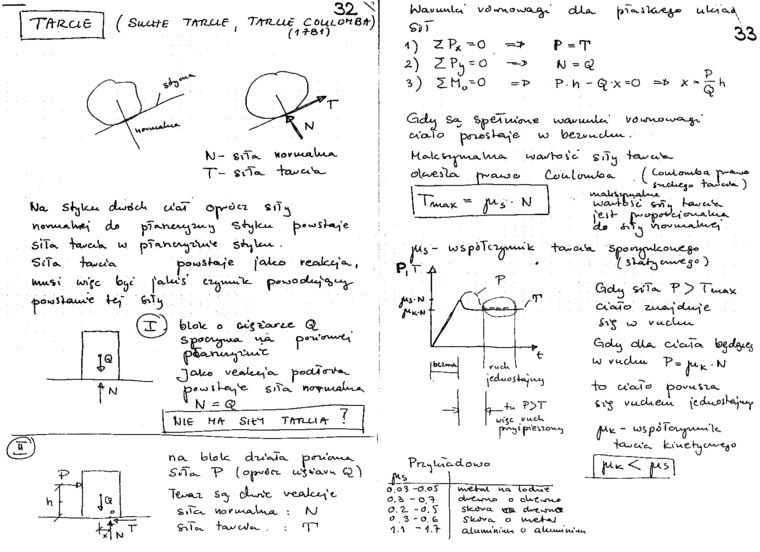 32
TARCIE (SUCHE TARCIE, TARCIE COULOMBA)
(1781)
styczna
normalna
T
N
N - siła normalna
T - siła tarcia
Na styku dwóch ciał oprócz siły
normalnej do płaszczyzny styku powstaje
siła tarcia w płaszczyźnie styku.
Siła tarcia powstaje jako reakcja,
musi więc być jakiś czynnik powodujący
powstanie tej siły
I
blok o ciężarze Q
spoczywa na poziomej
płaszczyźnie
Jako reakcja podłoża
powstaje siła normalna
N = Q
NIE MA SIŁY TARCIA ?
Q
N
II
na blok działa pozioma
siła P (oprócz ciężaru Q)
Teraz są dwie reakcje
siła normalna : N
siła tarcia : T
P
h
Q
o
T
x
N
33
Warunki równowagi dla płaskiego układu
sił
1) ΣPx = 0 => P = T
2) ΣPy = 0 => N = Q
3) ΣMo = 0 => P·h - Q·x = 0 => x = P/Q h
Gdy są spełnione warunki równowagi
ciało pozostaje w bezruchu.
Maksymalna wartość siły tarcia
określa prawo Coulomba. (Coulomba prawo
suchego tarcia)
Tmax = μs · N
maksymalna
wartość siły tarcia
jest proporcjonalna
do siły normalnej
μs - współczynnik tarcia spoczynkowego
(statycznego)
P, T
P
μs·N
μk·N
T
t
bezruch
ruch
jednostajny
tu P>T
więc ruch
przyspieszony
Gdy siła P > Tmax
ciało znajduje
się w ruchu
Gdy dla ciała będącego
w ruchu P = μk · N
to ciało porusza
się ruchem jednostajnym
μk - współczynnik
tarcia kinetycznego
μk < μs
Przykładowo
μs
0.03 - 0.05 metal na lodzie
0.3 - 0.7 drewno o drewno
0.2 - 0.5 skóra drewno
0.3 - 0.6 skóra o metal
1.1 - 1.7 aluminium o aluminium